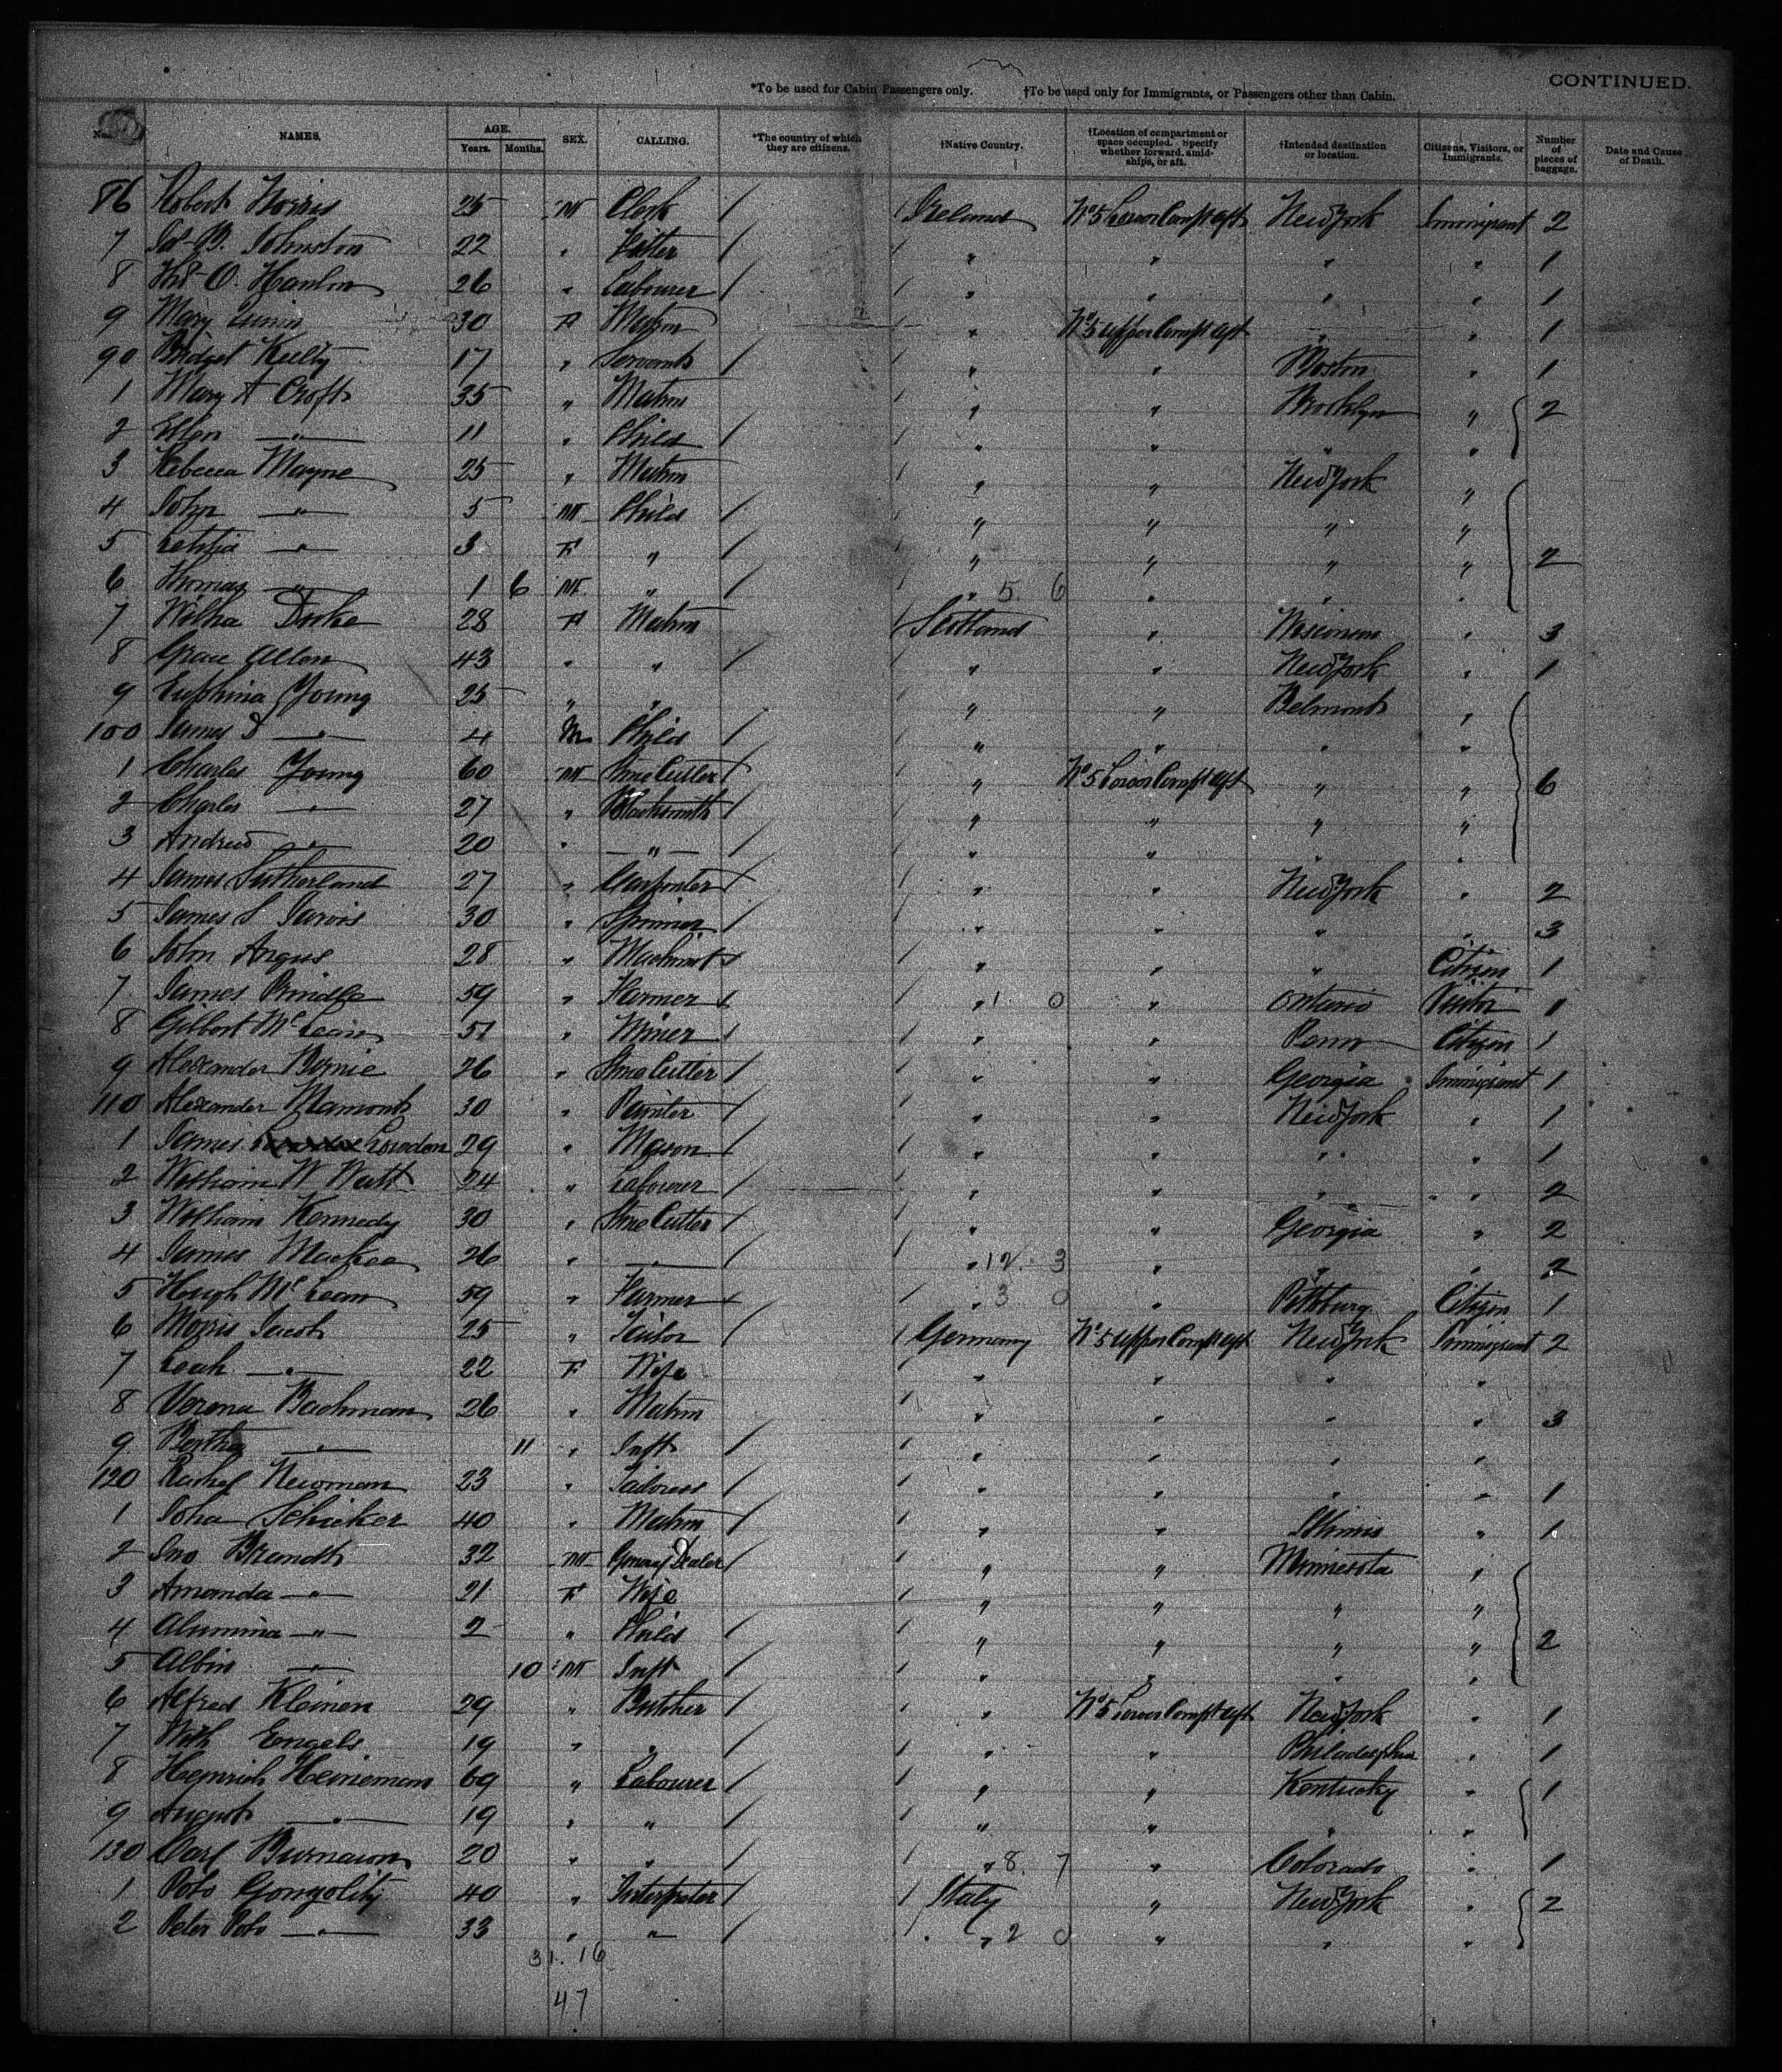 CONTINUED.
*To be used for Cabin Passengers only. †To be used only for Immigrants, or Passengers other than Cabin.
No. NAMES. AGE. Years. Months. SEX. CALLING. *The country of which they are citizens. †Native Country. †Location of compartment or space occupied. Specify whether forward, amidships, or aft. †Intended destination or location. Citizens, Visitors, or Immigrants. Number of pieces of baggage. Date and Cause of Death.
86 Robert 25 M Clerk / / Ireland No 5 Lower Compt aft New York Immigrant 2
7 Jas. B. Johnston 22 " Fitter / " " " " 1
8 O. Hanlon 26 " Labourer / / " " " " 1
9 Mary 30 F Matron / " No 5 Upper Compt aft " " 1
90 Bridget Kelly 17 " Servant / / " " Boston " 1
1 Mary A Croft 35 " Matron / " " Brooklyn " 2
2 Ellen — " — 11 " Child / / " " " "
3 Rebecca Mayne 25 " Matron / " " New York "
4 John — " — 5 M Child / / " " " "
5 Letitia — " — 3 F " / / " " " " 2
6 Thomas — " — 1 6 M " / / " 5. 6 " " "
7 28 F Matron / Scotland " Wisconsin " 3
8 Grace Allen 43 " " / / " " New York " 1
9 Euphina Young 25 " " " " Belmont "
100 James D — " — 4 M Child / / " " " "
1 Charles Young 60 M Stone Cutter / / " No 5 Lower Compt aft " " 6
2 Charles — " — 27 " Blacksmith / / " " " "
3 Andrew — " — 20 " — " — / / " " " "
4 James Sutherland 27 " Carpenter / / " " New York " 2
5 James S Jarvis 30 " / / " " " " 3
6 John Angus 28 " Machinist / / " " " Citizen 1
7 James Prindle 59 " Farmer / / " 1. 0 " Ontario Visitor 1
8 Gilbert McLean 51 " Miner / / " " Penn Citizen 1
9 Alexander Birnie 26 " Stone Cutter / / " " Georgia Immigrant 1
110 Alexander 30 " Painter / / " " New York " 1
1 James Lowdon 29 " Mason / / " " " " 1
2 William W Watt 24 " Labourer / / " " " " 2
3 William Kennedy 30 " Stone Cutter / / " " Georgia " 2
4 James Mackee 26 " — / / " 12. 3 " " " 2
5 Hough McLean 59 " Farmer / / " 3 0 " Pittsburg Citizen 1
6 Morris Jacob 25 " Tailor / / Germany No 5 Upper Compt aft New York Immigrant 2
7 Leah — " — 22 F Wife " " " "
8 Verena Bachman 26 " Matron / " " " " 3
9 Bertha — " — 11 " Inft / / " " " "
120 Rachel Newman 23 " Tailoress / / " " " " 1
1 Schicker 40 " Matron / / " " Illinois " 1
2 Jno Brandt 32 M General Dealer / / " " Minnesota "
3 Amanda — " — 21 F Wife / " " " "
4 — " — 2 " Child / / " " " " 2
5 Albin — " — 10 M Inft / / " " " "
6 Alfred Kleinen 29 " Butcher / / " No 5 Lower Compt aft New York " 1
7 Wilh Engels 19 " " / / " " Philadelphia " 1
8 Heinrich Heineman 69 " Labourer / / " " Kentucky " 1
9 August — " — 19 " " / / " " " "
130 Carl 20 " " / / " 8. 7 " Colorado " 1
1 Polo 40 " Interpreter / / Italy " New York " 2
2 Peter Polo — " — 33 " " / / " 2 0 " " "
31. 16
47